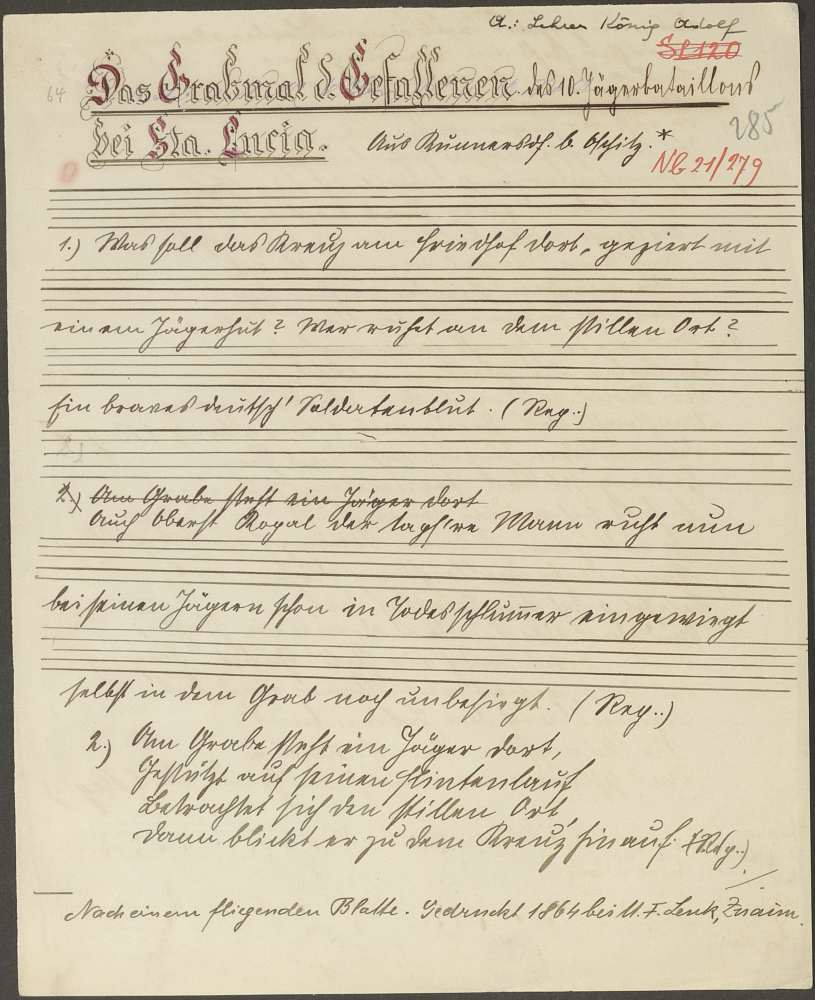 A.: Lehrer König Adolf
St 120
64
Das Grabmal d. Gefallenen des 10. Jägerbataillons
285
bei Sta. Lucia. Aus Kunnersdf. b. Oschitz.*
Nb 21/279
1.) Was soll das Kreuz am Friedhof dort, geziert mit
einem Jägerhut? Wer ruhet an dem stillen Ort?
Ein braves deutsch' Soldatenblut. (Rep..)
2.) Am Grabe steht ein Jäger dort
Auch Oberst Kopal der tapf're Mann ruht nun
bei seinen Jägern schon in Todesschlummer eingewiegt
selbst in dem Grab noch unbesiegt. (Rep..)
2.) Am Grabe steht ein Jäger dort,
Gestützt auf seinen Flintenlauf
Betrachtet sich den stillen Ort,
Dann blickt er zu dem Kreuz hinauf. (Rep..)
Nach einem fliegenden Blatte. Gedruckt 1864 bei M. F. Lenk, Znaim.